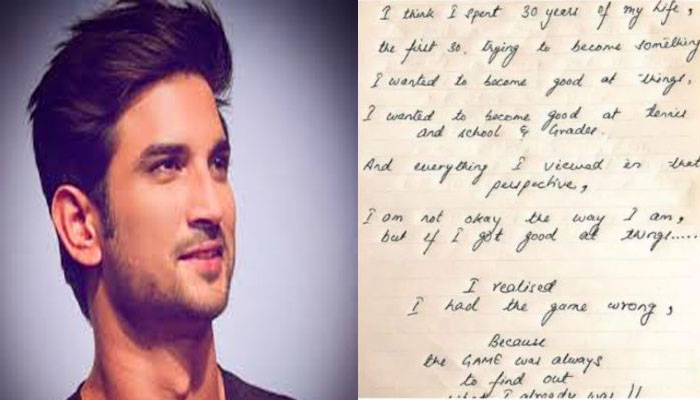 I think I spent 30 years of my life,
the first 30, trying to become something
I wanted to become good at things,
I wanted to become good at tennis
and school & Grades.
And everything I viewed in that
perspective,
I am not okay the way I am,
but if I got good at things.....
I realised
I had the game wrong,
Because
the GAME was always
to find out
what I already was !!